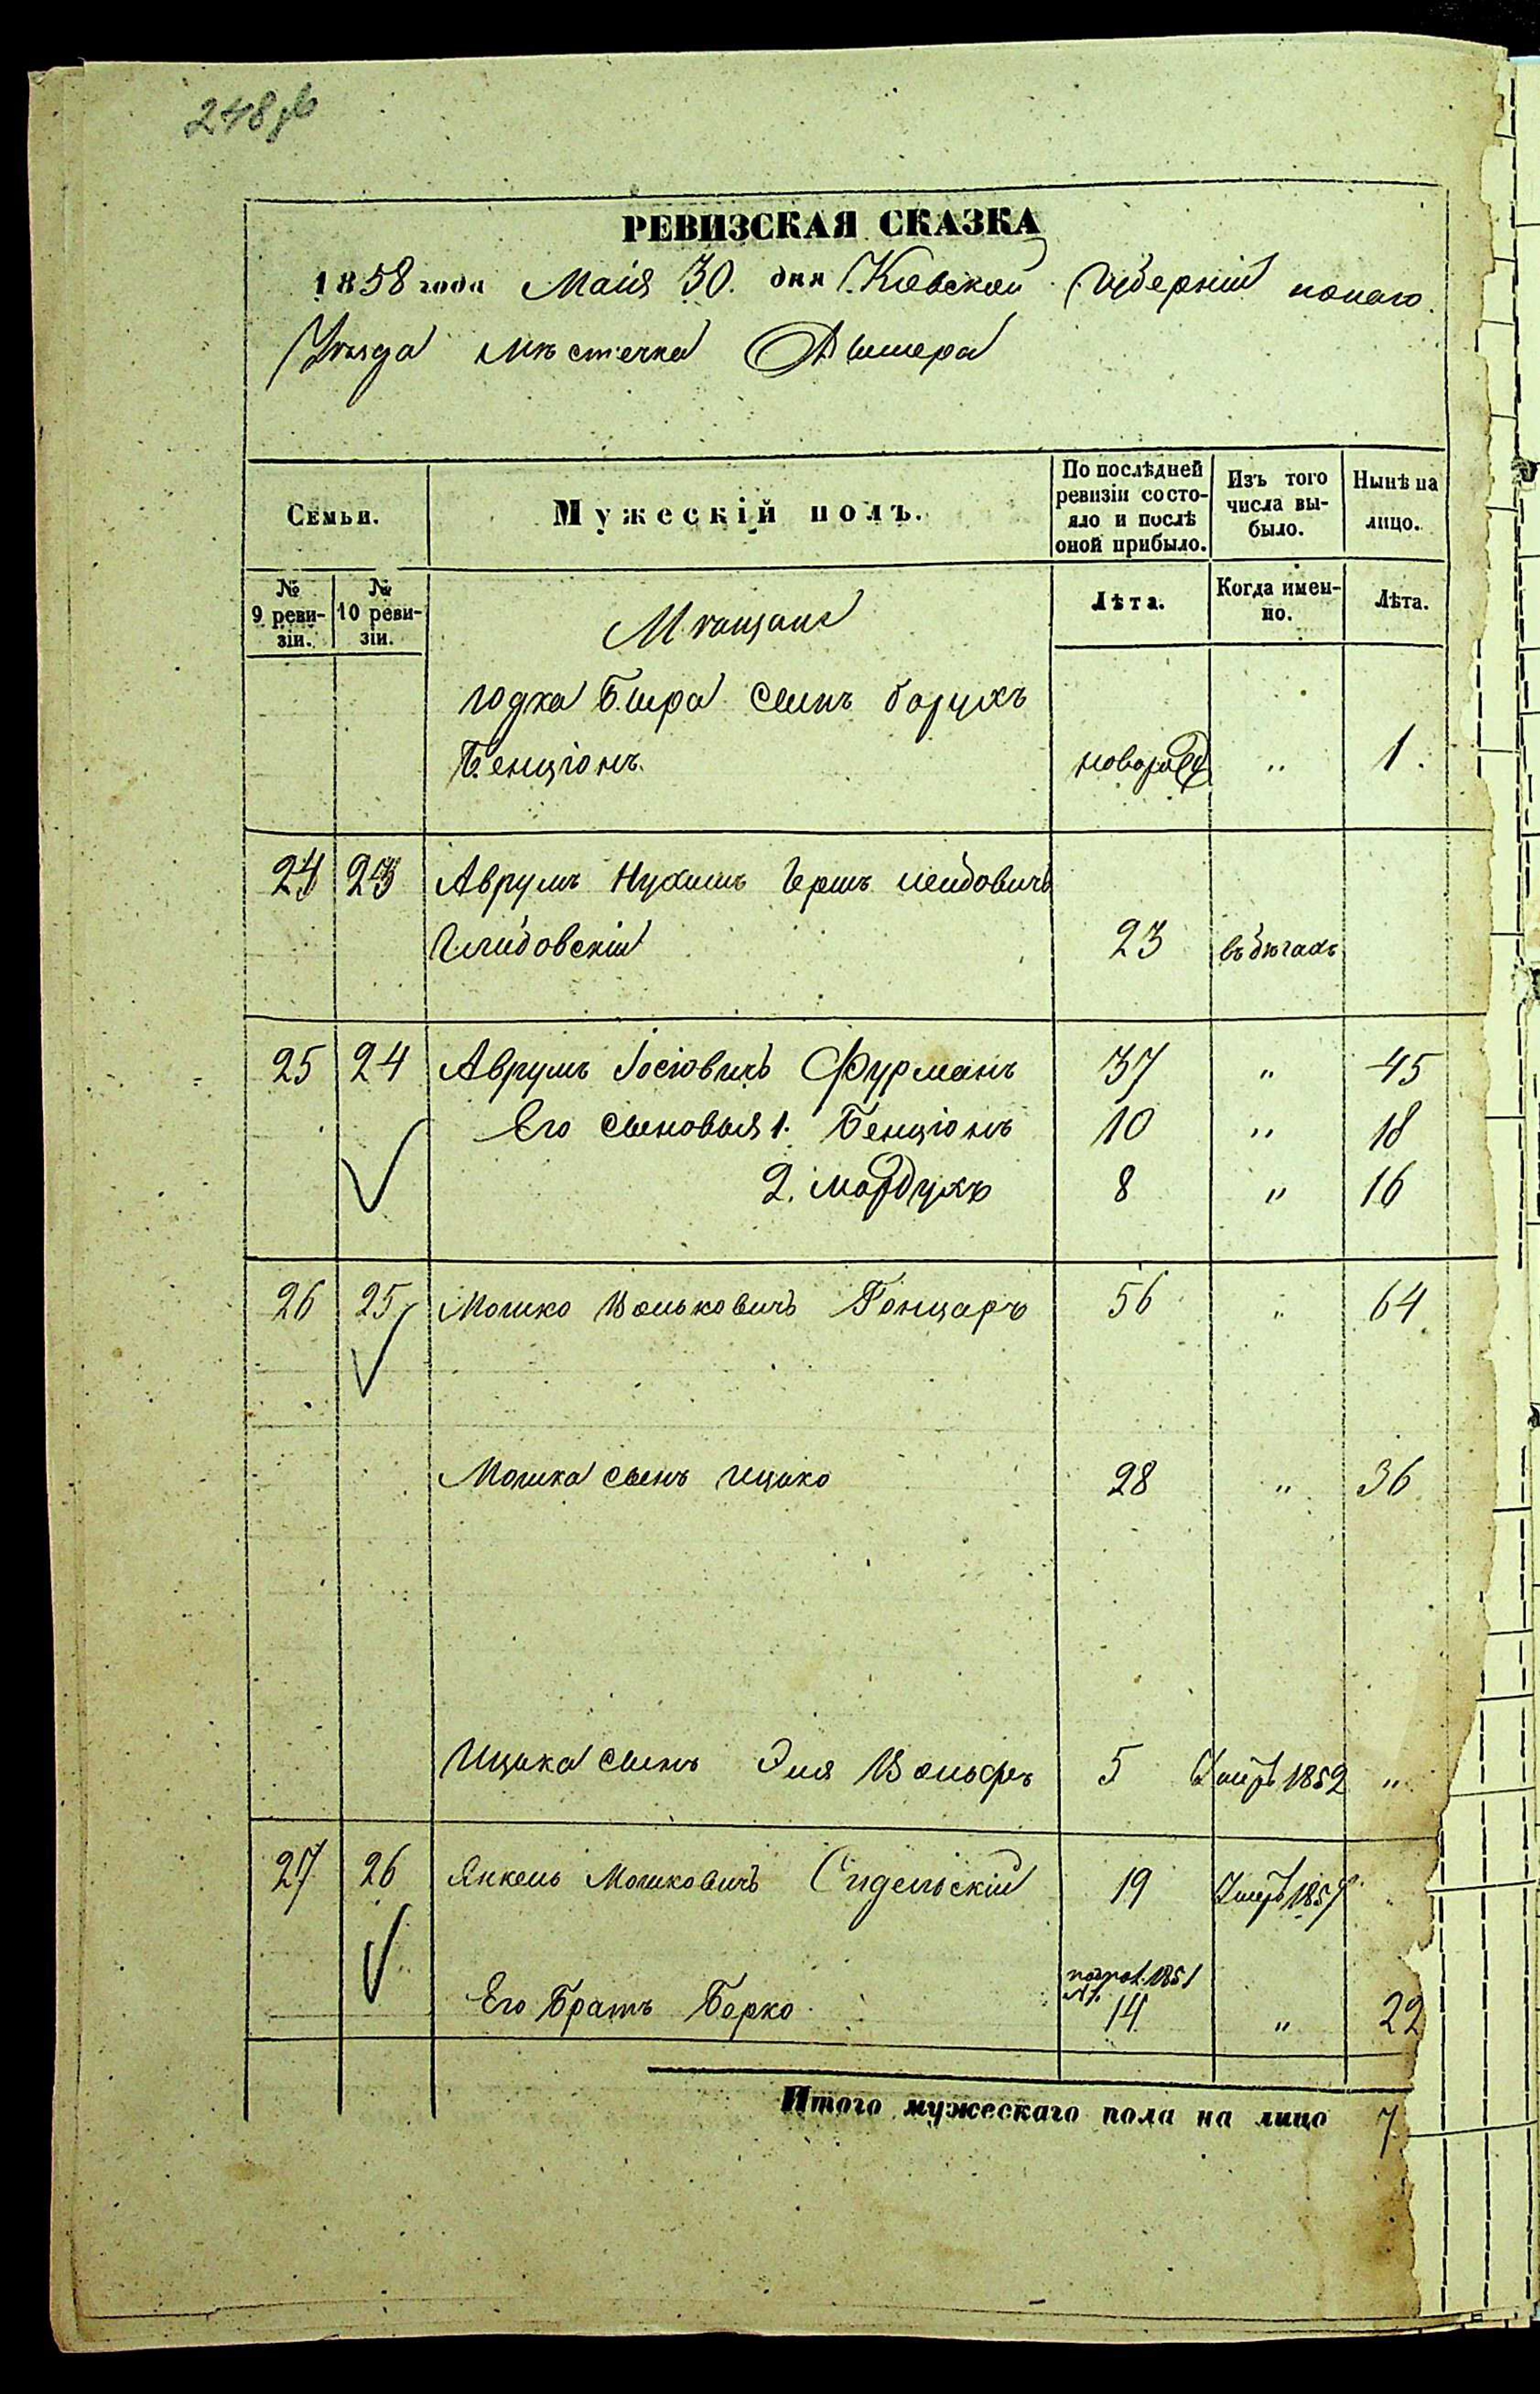 РЕВИЗСКАЯ СКАЗКА
1858 года Маія 30. дня Кіевской Губерніи
Уезда местечка Дымера
Семьи.
Мужескій полъ.
По послѣдней ревизіи состояло и послѣ оной прибыло.
Изъ того числа выбыло.
Нынѣ на лицо.
№ 9 ревизіи.
№ 10 ревизіи.
Мещане
Лѣта.
Когда именно.
Лѣта.
Сынъ Борухъ
Бенціонъ. новорожд " 1.
24 23 Аврумъ Нухимъ Гершъ Лейбовичъ
23 въ бегахъ
25 24 Аврумъ Іосіовичъ Фурманъ 37 " 45
Его сыновья 1. Бенціонъ 10 " 18
2. Мордухъ 8 " 16
26 25 Мошко Вольковичъ Гонцаръ 56 " 64
Мошка сынъ Ицько 28 " 36
Ицька сынъ Эля Вольфъ 5 Умеръ 1852 "
27 26 Янкель Мошковичъ Сидельскій 19 Умеръ 1857
1851
Его Братъ Берко 14 " 22
Итого мужескаго пола на лицо 7